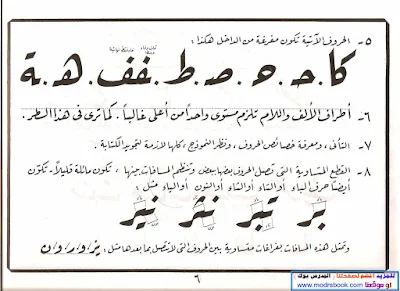 ٥- الحروف الآتية تكون مفرغة من الداخل هكذا :
كا . حـ . ه . صـ . ط . غفف . هـ . ـة
٦- أطراف الألف واللام تلزم مستوى واحداً من أعلى غالباً . كما ترى فى هذا السطر .
٧- التأنى ، ومعرفة خصائص الحروف ، ونظر النموذج ، كلها لازمة لتجويد الكتابة .
٨- القطع المتساوية التى تصل الحروف بعضها ببعض وتنظم المسافات بينها ، تكون مائلة قليلاً - تكون
أيضاً حرف الباء أو التاء أو الثاء أو النون أو الياء مثل :
بر تبر نثر نير
وتمثل هذه المسافات بفراغات متساوية بين الحروف التى لا تتصل بما بعدها مثل : بز/و/ر/و/ن
٦
للمزيد انضم لصفحتنا : المدرس بوك
او موقعنا www.modrsbook.com